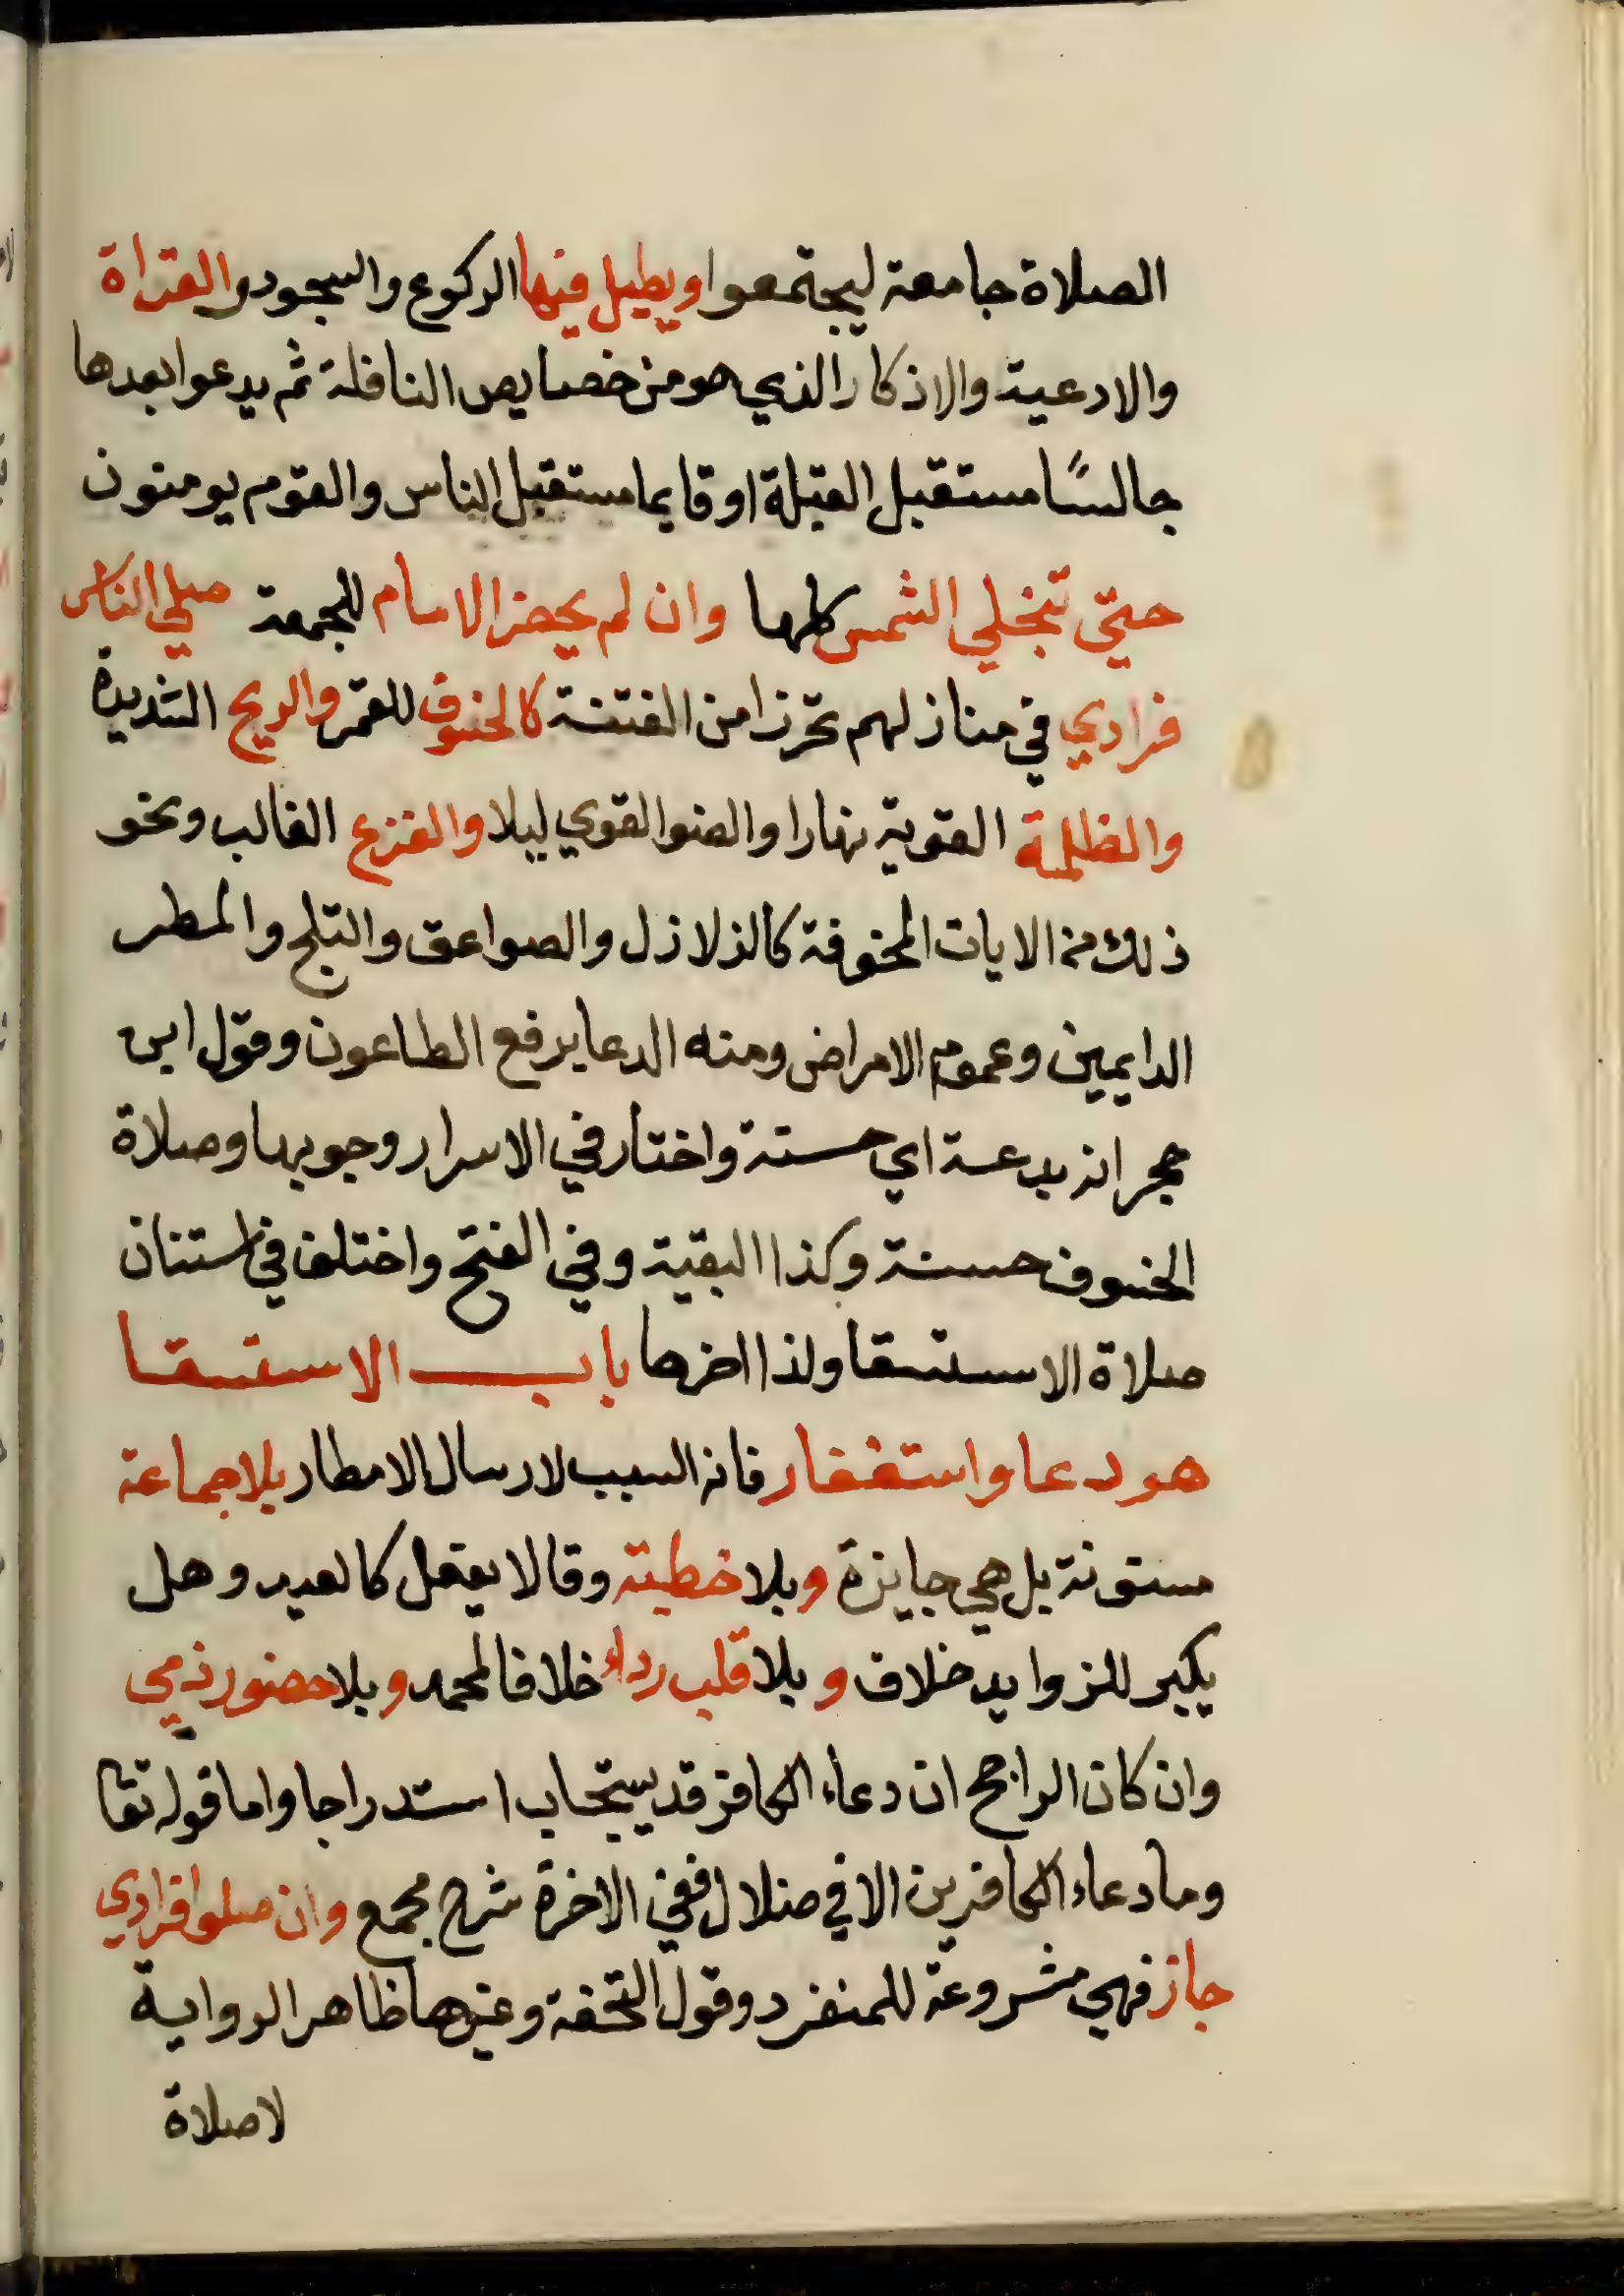 الصلاة جامعة ليجتمعوا ويطيل فيها الركوع والسجود والقراة
والادعية والاذكار الذي هو من خصايص النافلة ثم يدعوا بعدها
جالسًا مستقبل القبلة او قايما مستقبل الناس والقوم يومنون
حتي تنجلي الشمس كلها وان لم يحضر الامام للجمعة صلي الناس
فرادي في منازلهم تحرزا من الفتنة كالخسوف للقمر والريح الشديدة
والظلمة القوية نهارا والضو القوي ليلا والفزع الغالب ونحو
ذلك من الايات المخوفة كالزلازل والصواعق والثلج والمطر
الدايمين وعموم الامراض ومنه الدعا برفع الطاعون وقول ابن
حجر انه بدعة اي حسنة واختار في الاسرار وجوبها وصلاة
الخسوف حسنة وكذا البقية وفي الفتح واختلف في استنان
صلاة الاستسقا ولذا اخرها باب الاستسقا
هو دعا واستغفار فانه السبب لارسال الامطار بلا جماعة
مسنونة بل هي جايزة وبلا خطبة وقالا يفعل كالعيد وهل
يكبر للزوايد خلاف وبلا قلب رداء خلافا لمحمد وبلا حضور ذمي
وان كان الراجح ان دعاء الكافر قد يستجاب استدراجا واما قوله تعا
وما دعاء الكافرين الا في ضلال ففي الاخرة شرح مجمع وان صلوا فرادي
جاز فهي مشروعة للمنفرد وقول التحفة وغيرها ظاهر الرواية
لا صلاة